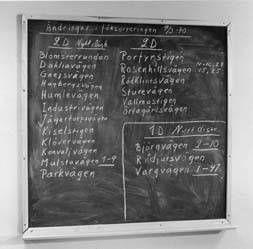 Ändringar i försorteringen 9/3-70
2 D Nytt disgb
Blomsterrundan
Dahliavägen
Gnejsvägen
Hagbergsvägen
Humlevägen
Industrivägen
Jägartorpsvägen
Kiselstigen
Klövervägen
Konvaljvägen
Mulstavägen 1-9
Parkvägen
2 D
Porfyrstigen
Rosenhillsvägen
Rödklintsvägen
Sturevägen
Vallmostigen
Örtagårdsvägen
1 D Nytt
Björnvägen 2-10
Rådjursvägen
Vargvägen 1-47